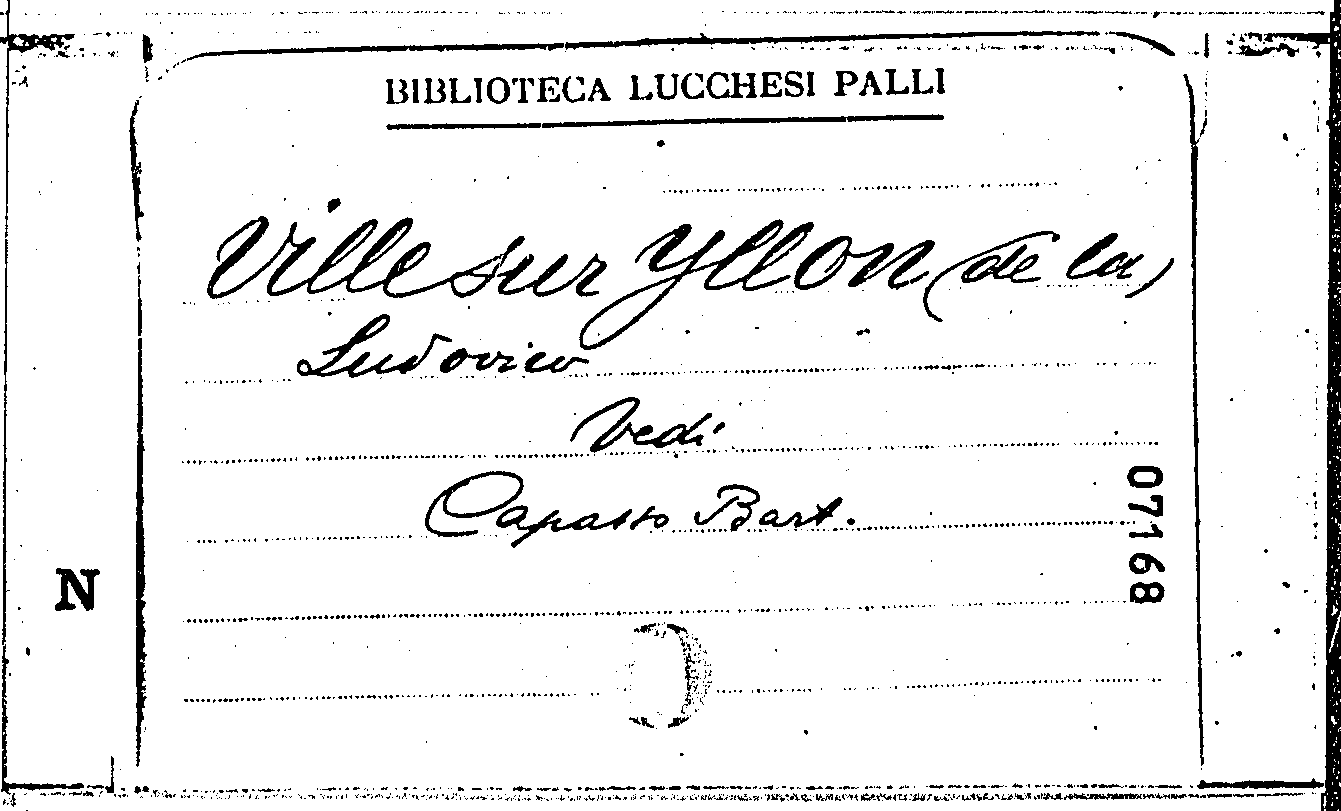 BIBLIOTECA LUCCHESI PALLI
Ville sur Yllon (de la)
Ludovico
Vedi
Capasso Bart.
07168
N